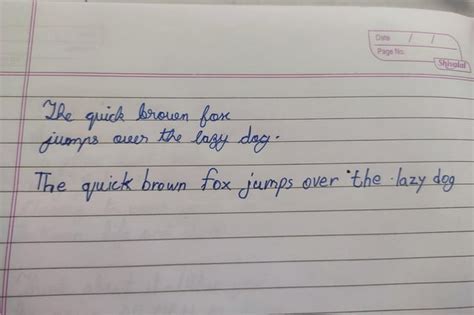 Date / /
Page No.
Shivalal
The quick brown fox
jumps over the lazy dog.
The quick brown fox jumps over the lazy dog